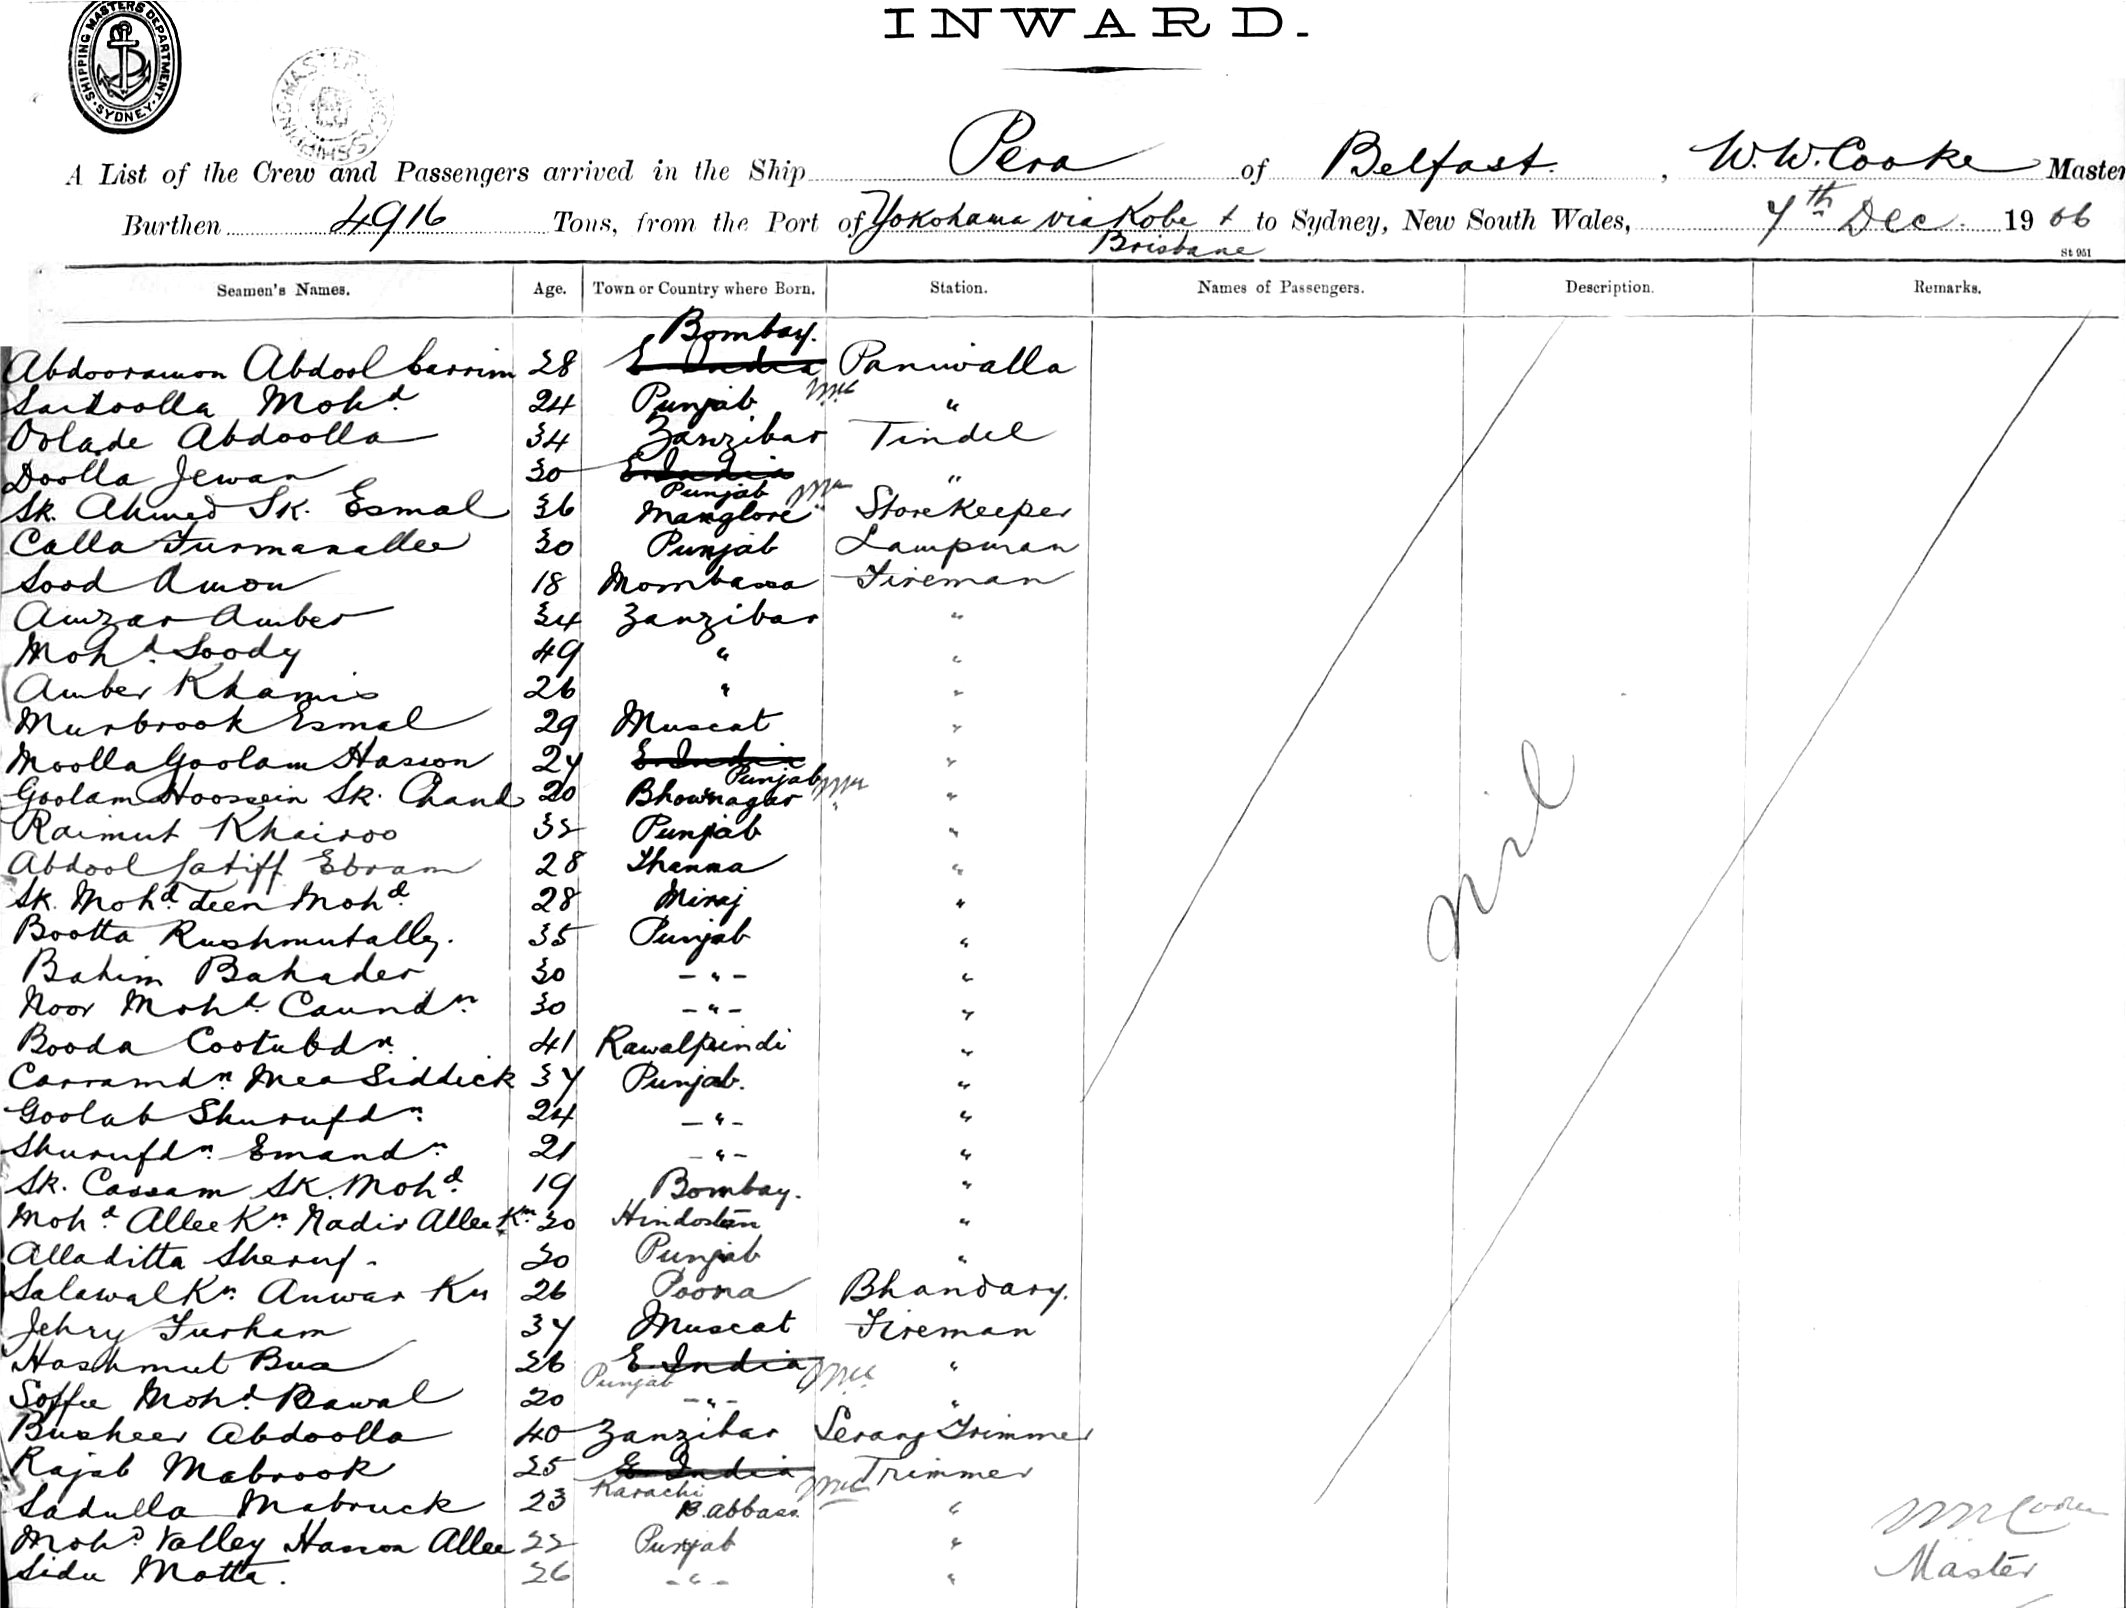 SHIPPING MASTERS DEPARTMENT. SYDNEY.
INWARD.
A List of the Crew and Passengers arrived in the Ship Pera of Belfast. , W. W. Cooke Master
Burthen 4916 Tons, from the Port of Yokohama via Kobe & to Sydney, New South Wales, 7th Dec. 1906
Brisbane
St 951
Seamen's Names. Age. Town or Country where Born. Station. Names of Passengers. Description. Remarks.
Bombay.
Abdooramon Abdool Carrim 28 E India Paniwalla
Saidoolla Mohd. 24 Punjab "
Oolade Abdoolla 34 Zanzibar Tindel
Doolla Jewan 30 E. India "
Punjab
Sk. Ahmed Sk. Esmal 36 Manglore Storekeeper
Calla Furmanallee 30 Punjab Lampman
Sood Amon 18 Mombassa Fireman
Amzar Amber 34 Zanzibar "
Mohd. Soody 49 " "
Amber Khamis 26 " "
Murbrook Esmal 29 Muscat "
Moolla Goolam Hasson 27 E. India "
Punjab
Goolam Hoossein Sk. Chand 20 Bhownagar "
Raimut Khairoo 32 Punjab "
Abdool Latiff Ebram 28 Thanna "
Sk. Mohd. deen Mohd. 28 Miraj "
Bootta Rushmutally. 35 Punjab "
Bahim Bahader 30 - " - "
Noor Mohd. Caundn. 30 - " - "
Booda Cootubdn. 41 Rawalpindi "
Carramdn. Mea Siddick 37 Punjab. "
Goolab Shurufdn. 24 - " - "
Shurufdn. Emandn. 21 - " - "
Sk. Cassam Sk. Mohd. 19 Bombay. "
Mohd. Allee Kn. Nadir Allee Kn. 30 Hindostan "
Alladitta Sheruf. 30 Punjab "
Salawal Kn. Anwar Kn 26 Poona Bhandary.
Jehry Furham 37 Muscat Fireman
Hashmut Bux 26 E. India "
Punjab
Soffee Mohd. Rawal 20 - " - "
Busheer Abdoolla 40 Zanzibar Serang Trimmer
Rajab Mabrook 25 E. India Trimmer
Karachi
Sadulla Mabruck 23 B. Abbass. "
Mohd. Valley Hasson Allee 22 Punjab "
Sidu Motta. 26 - " - "
nil
W W Cooke
Master